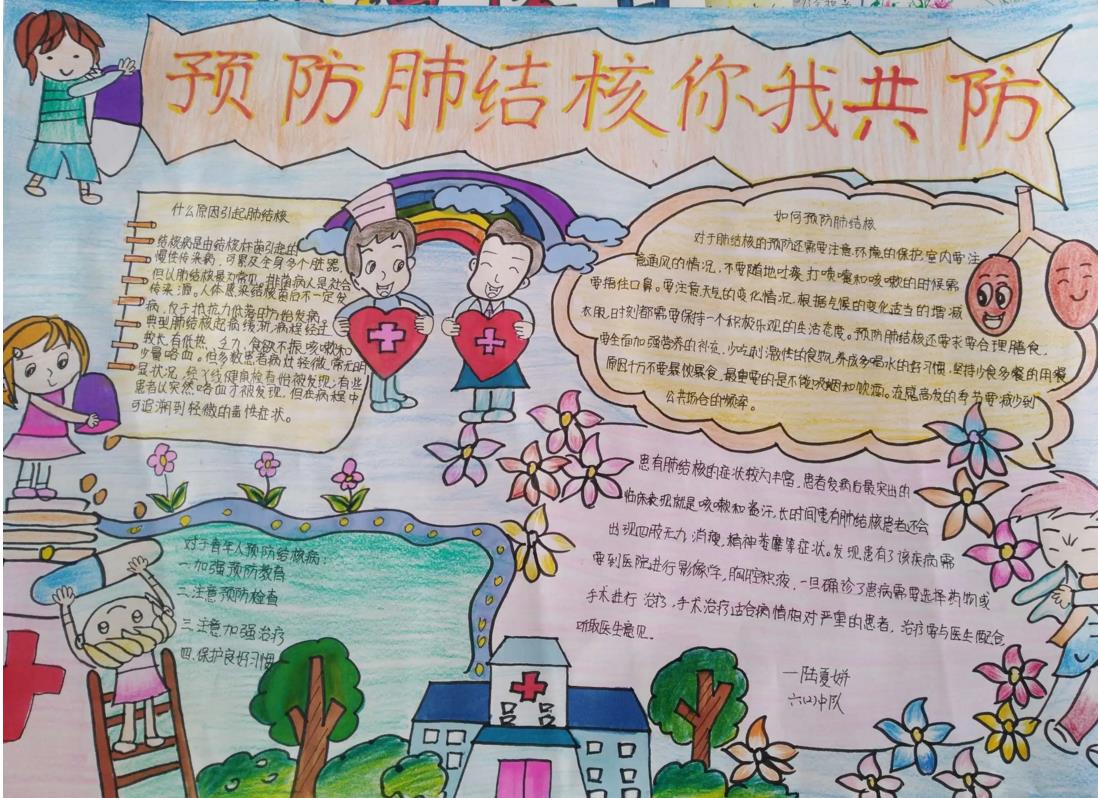 预防肺结核你我共防
什么原因引起肺结核
结核病是由结核杆菌引起的
慢性传染病，可累及全身多个脏器，
但以肺结核最为常见，排菌病人是社会
传染源。人体感染结核菌后不一定发
病，仅于抵抗力低落时方始发病。
典型肺结核起病缓渐，病程经过
较长，有低热、乏力、食欲不振，咳嗽和
少量咯血。但多数患者病灶轻微，常无明
显状况，经X线健康检查始被发现，有些
患者以突然咯血才被发现，但在病程中
可追溯到轻微的毒性症状。
如何预防肺结核
对于肺结核的预防还需要注意环境的保护，室内要注
意通风的情况，不要随地吐痰，打喷嚏和咳嗽的时候需
要捂住口鼻。要注意天气的变化情况，根据气候的变化适当的增减
衣服，时刻都需要保持一个积极乐观的生活态度。预防肺结核还要求要合理膳食，
要全面加强营养的补充，少吃刺激性的食物，养成多喝水的好习惯，坚持少食多餐的用餐
原则千万不要暴饮暴食，最重要的是不能吸烟和饮酒。流感高发的季节要减少到
公共场合的频率。
患有肺结核的症状较为丰富，患者发病后最突出的
临床表现就是咳嗽和盗汗，长时间患有肺结核患者还会
出现四肢无力，消瘦，精神萎靡等症状。发现患有了该疾病需
要到医院进行影像学，胸腔积液，一旦确诊了患病需要选择药物或
手术进行治疗，手术治疗适合病情相对严重的患者，治疗需与医生配合，
听取医生意见。
—陆夏妍
六(2)中队
对于青年人预防结核病：
一.加强预防教育
二.注意预防检查
三.注意加强治疗
四.保护良好习惯